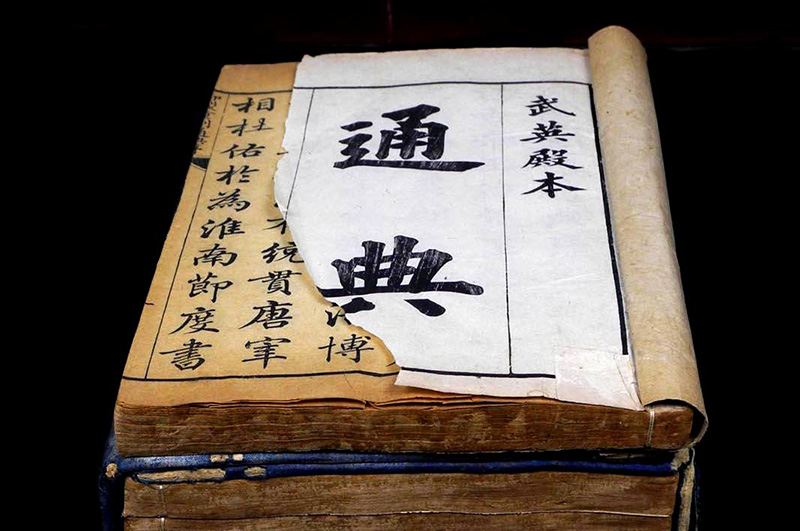 武英殿本
通典
博
統貫唐宰
相杜佑於為淮南節度書